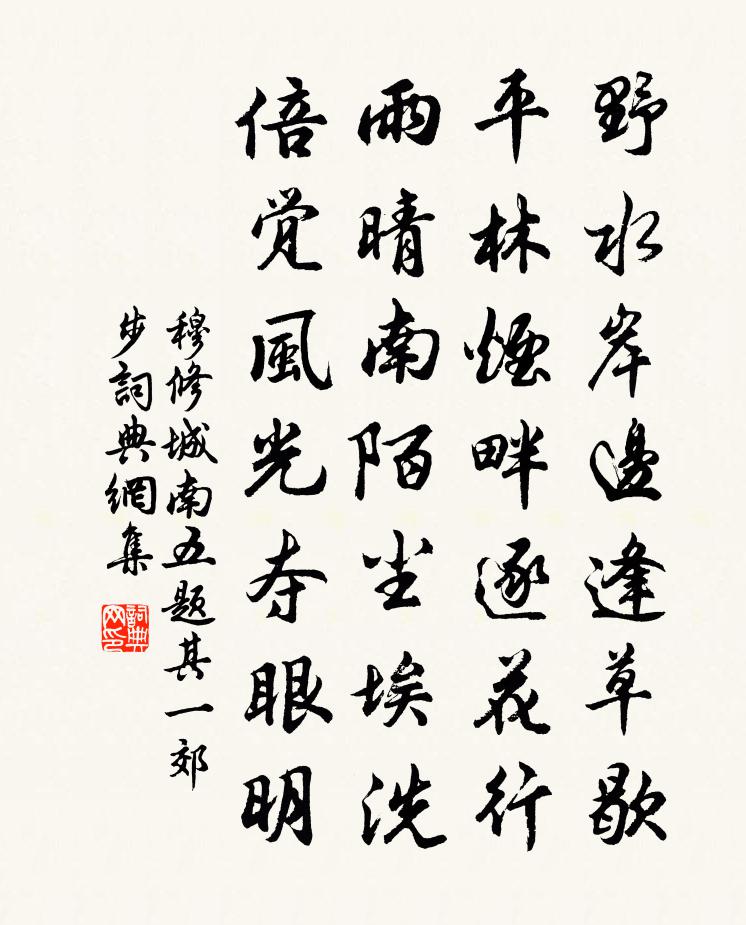 野水岸邊逢草歇
平林煙畔逐花行
雨晴南陌尘埃洗
倍覚風光夺眼明
穆修城南五题其一郊
步詞典網集
詞典
网印